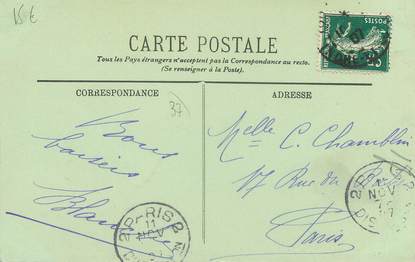 15 €
CARTE POSTALE
Tous les Pays étrangers n'acceptent pas la Correspondance au recto.
(Se renseigner à la Poste).
CORRESPONDANCE
ADRESSE
37
Bons
baisers
Blanche
Melle C. Chamblin
17 Rue du
Paris
POSTES
PARIS
11
NOV
11
NOV